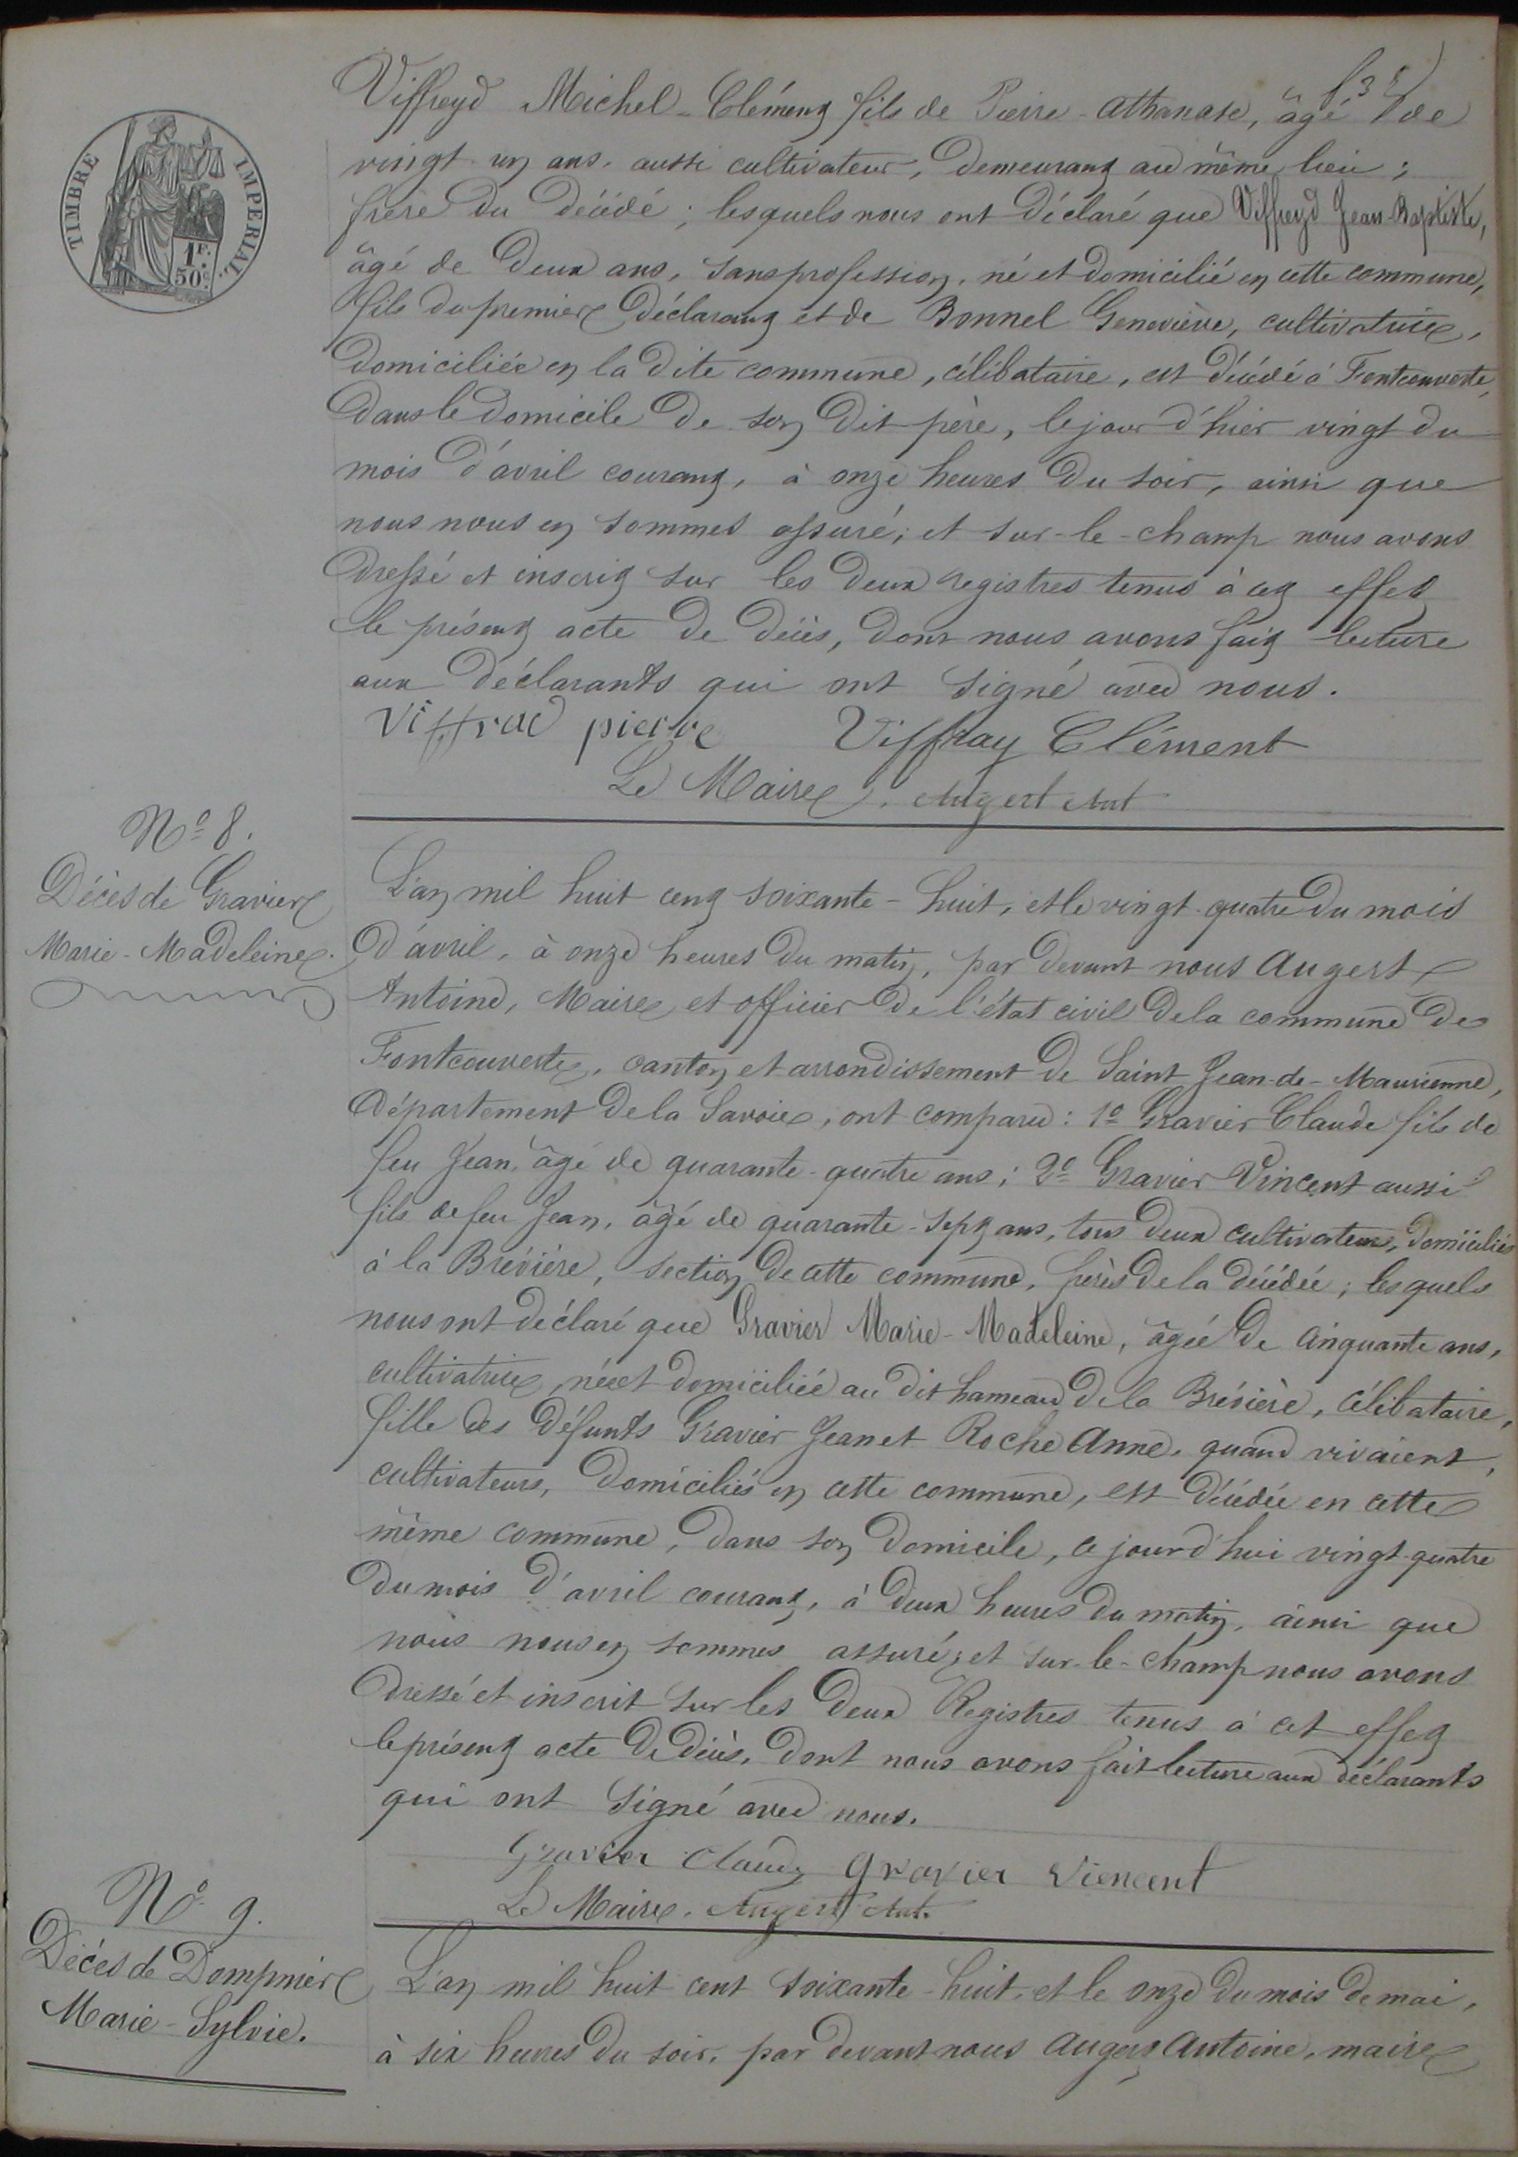 TIMBRE IMPERIAL.
1F.
50c.
Viffreyd Michel-Clément fils de Pierre-Athanase, âgé de
vingt un ans, aussi cultivateur, demeurant au même lieu ;
frère du décédé ; lesquels nous ont déclaré que Viffreyd Jean-Baptiste,
âgé de deux ans, sans profession, né et domicilié en cette commune,
fils du premier déclarant et de Bonnel Geneviève, cultivatrice,
domiciliée en la dite commune, célibataire, est décédé à Fontcouverte,
dans le domicile de son dit père, le jour d'hier vingt du
mois d'avril courant, à onze heures du soir, ainsi que
nous nous en sommes assuré ; et sur-le-champ nous avons
dressé et inscrit sur les deux registres tenus à cet effet
le présent acte de décès, dont nous avons fait lecture
aux déclarants qui ont signé avec nous.
pierre Viffray Clément
Le Maire, Augert Ant
N° 8.
Décès de Gravier
Marie-Madeleine.
L'an mil huit cent soixante-huit, et le vingt-quatre du mois
d'avril, à onze heures du matin, par devant nous Augert
Antoine, Maire et officier de l'état civil de la commune de
Fontcouverte, canton et arrondissement de Saint Jean-de-Maurienne,
Département de la Savoie, ont comparu : 1° Gravier Claude fils de
feu Jean, âgé de quarante-quatre ans ; 2° Gravier Vincent aussi
fils de feu Jean, âgé de quarante-sept ans, tous deux cultivateurs, domiciliés
à la Brévière, section de cette commune, frères de la décédée ; lesquels
nous ont déclaré que Gravier Marie-Madeleine, âgée de cinquante ans,
cultivatrice, née et domiciliée au dit hameau de la Brévière, célibataire,
fille des défunts Gravier Jean et Roche Anne, quand vivaient,
cultivateurs, domiciliés en cette commune, est décédée en cette
même commune, dans son domicile, ce jourd'hui vingt-quatre
du mois d'avril courant, à deux heures du matin, ainsi que
nous nous en sommes assuré, et sur-le-champ nous avons
dressé et inscrit sur les deux Registres tenus à cet effet
le présent acte de décès, dont nous avons fait lecture aux déclarants
qui ont signé avec nous.
Gravier Claude Gravier Viencent
Le Maire, Augert Ant.
N° 9.
Décès de Dompnier
Marie-Sylvie.
L'an mil huit cent soixante-huit, et le onze du mois de mai,
à six heures du soir, par devant nous Augert Antoine, maire